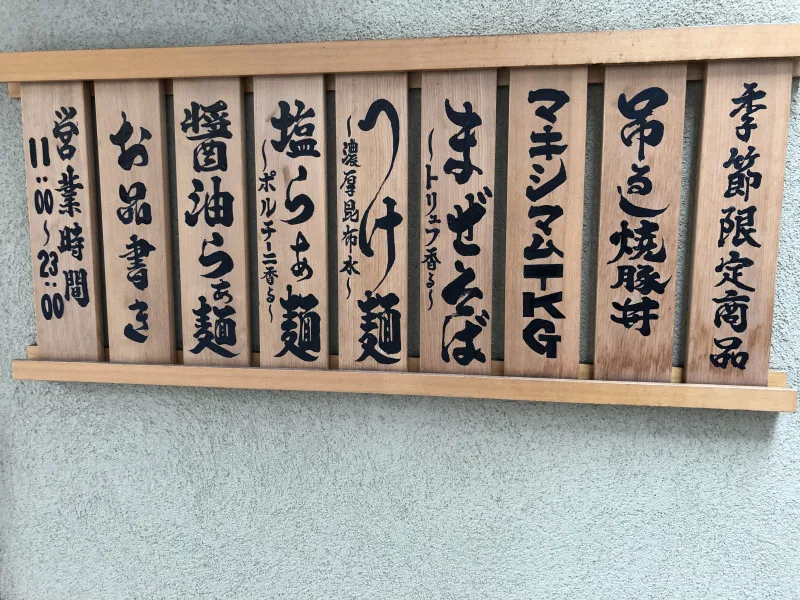 営業時間
11:00〜23:00
お品書き
醤油らぁ麺
塩らぁ麺
〜ポルチーニ香る〜
つけ麺
〜濃厚昆布水〜
まぜそば
〜トリュフ香る〜
マキシマムTKG
吊るし焼豚丼
季節限定商品